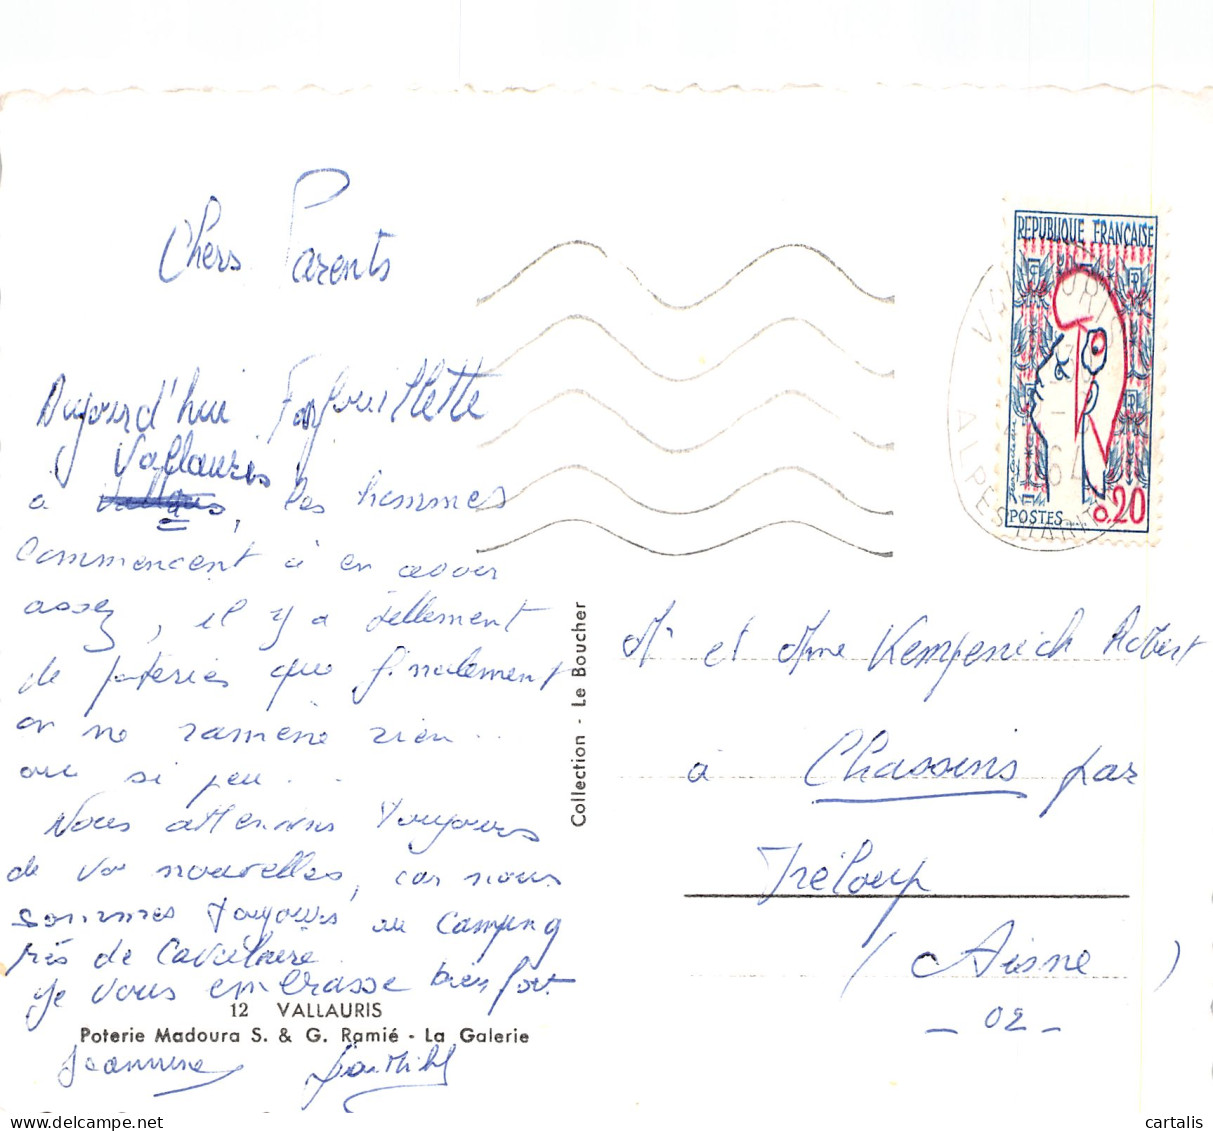 Chers Parents
Aujourd'hui Farfouillette
Vallauris
à , les hommes
commencent à en avoir
assez, il y a tellement
de poteries que finalement
on ne ramène rien..
ou si peu..
Nous attendons toujours
de vos nouvelles, car nous
sommes toujours au camping
près de Cavalaire.
Je vous embrasse bien fort.
12 VALLAURIS
Poterie Madoura S. & G. Ramié - La Galerie
Jeannine
Collection - Le Boucher
REPUBLIQUE FRANÇAISE
POSTES 0,20
ALPES MARIT
64
Mr et Mme Kempenich Robert
à Chassins par
Tréloup
(Aisne)
- 02 -
cartalis